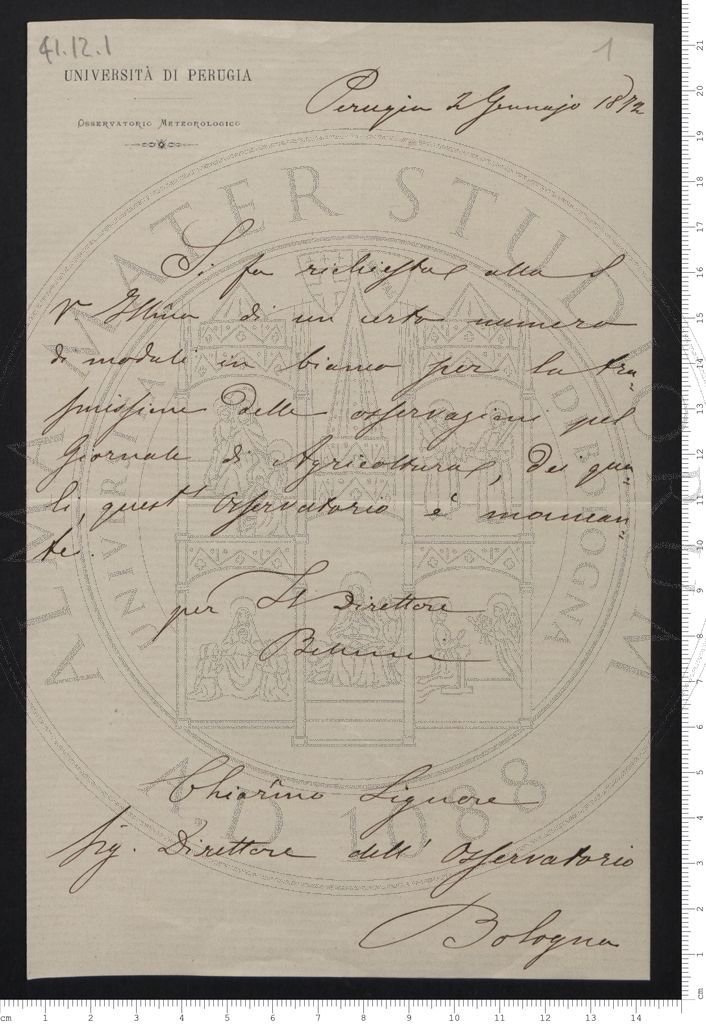 41.12.1
1
UNIVERSITÀ DI PERUGIA
OSSERVATORIO METEOROLOGICO
Perugia 2 Gennajo 1872
Si fa richiesta alla S
V. Illma di un certo numero
di moduli in bianco per la tra=
smissione delle osservazioni pel
Giornale di Agricoltura, dei qua=
li, quest' Osservatorio è mancan=
te.
per Il Direttore
Bellucci
Chiarmo Signore
Sig. Direttore dell' Osservatorio
Bologna
ALMA MATER STUDIORUM
UNIVERSITÀ DI BOLOGNA
A.D. 1088